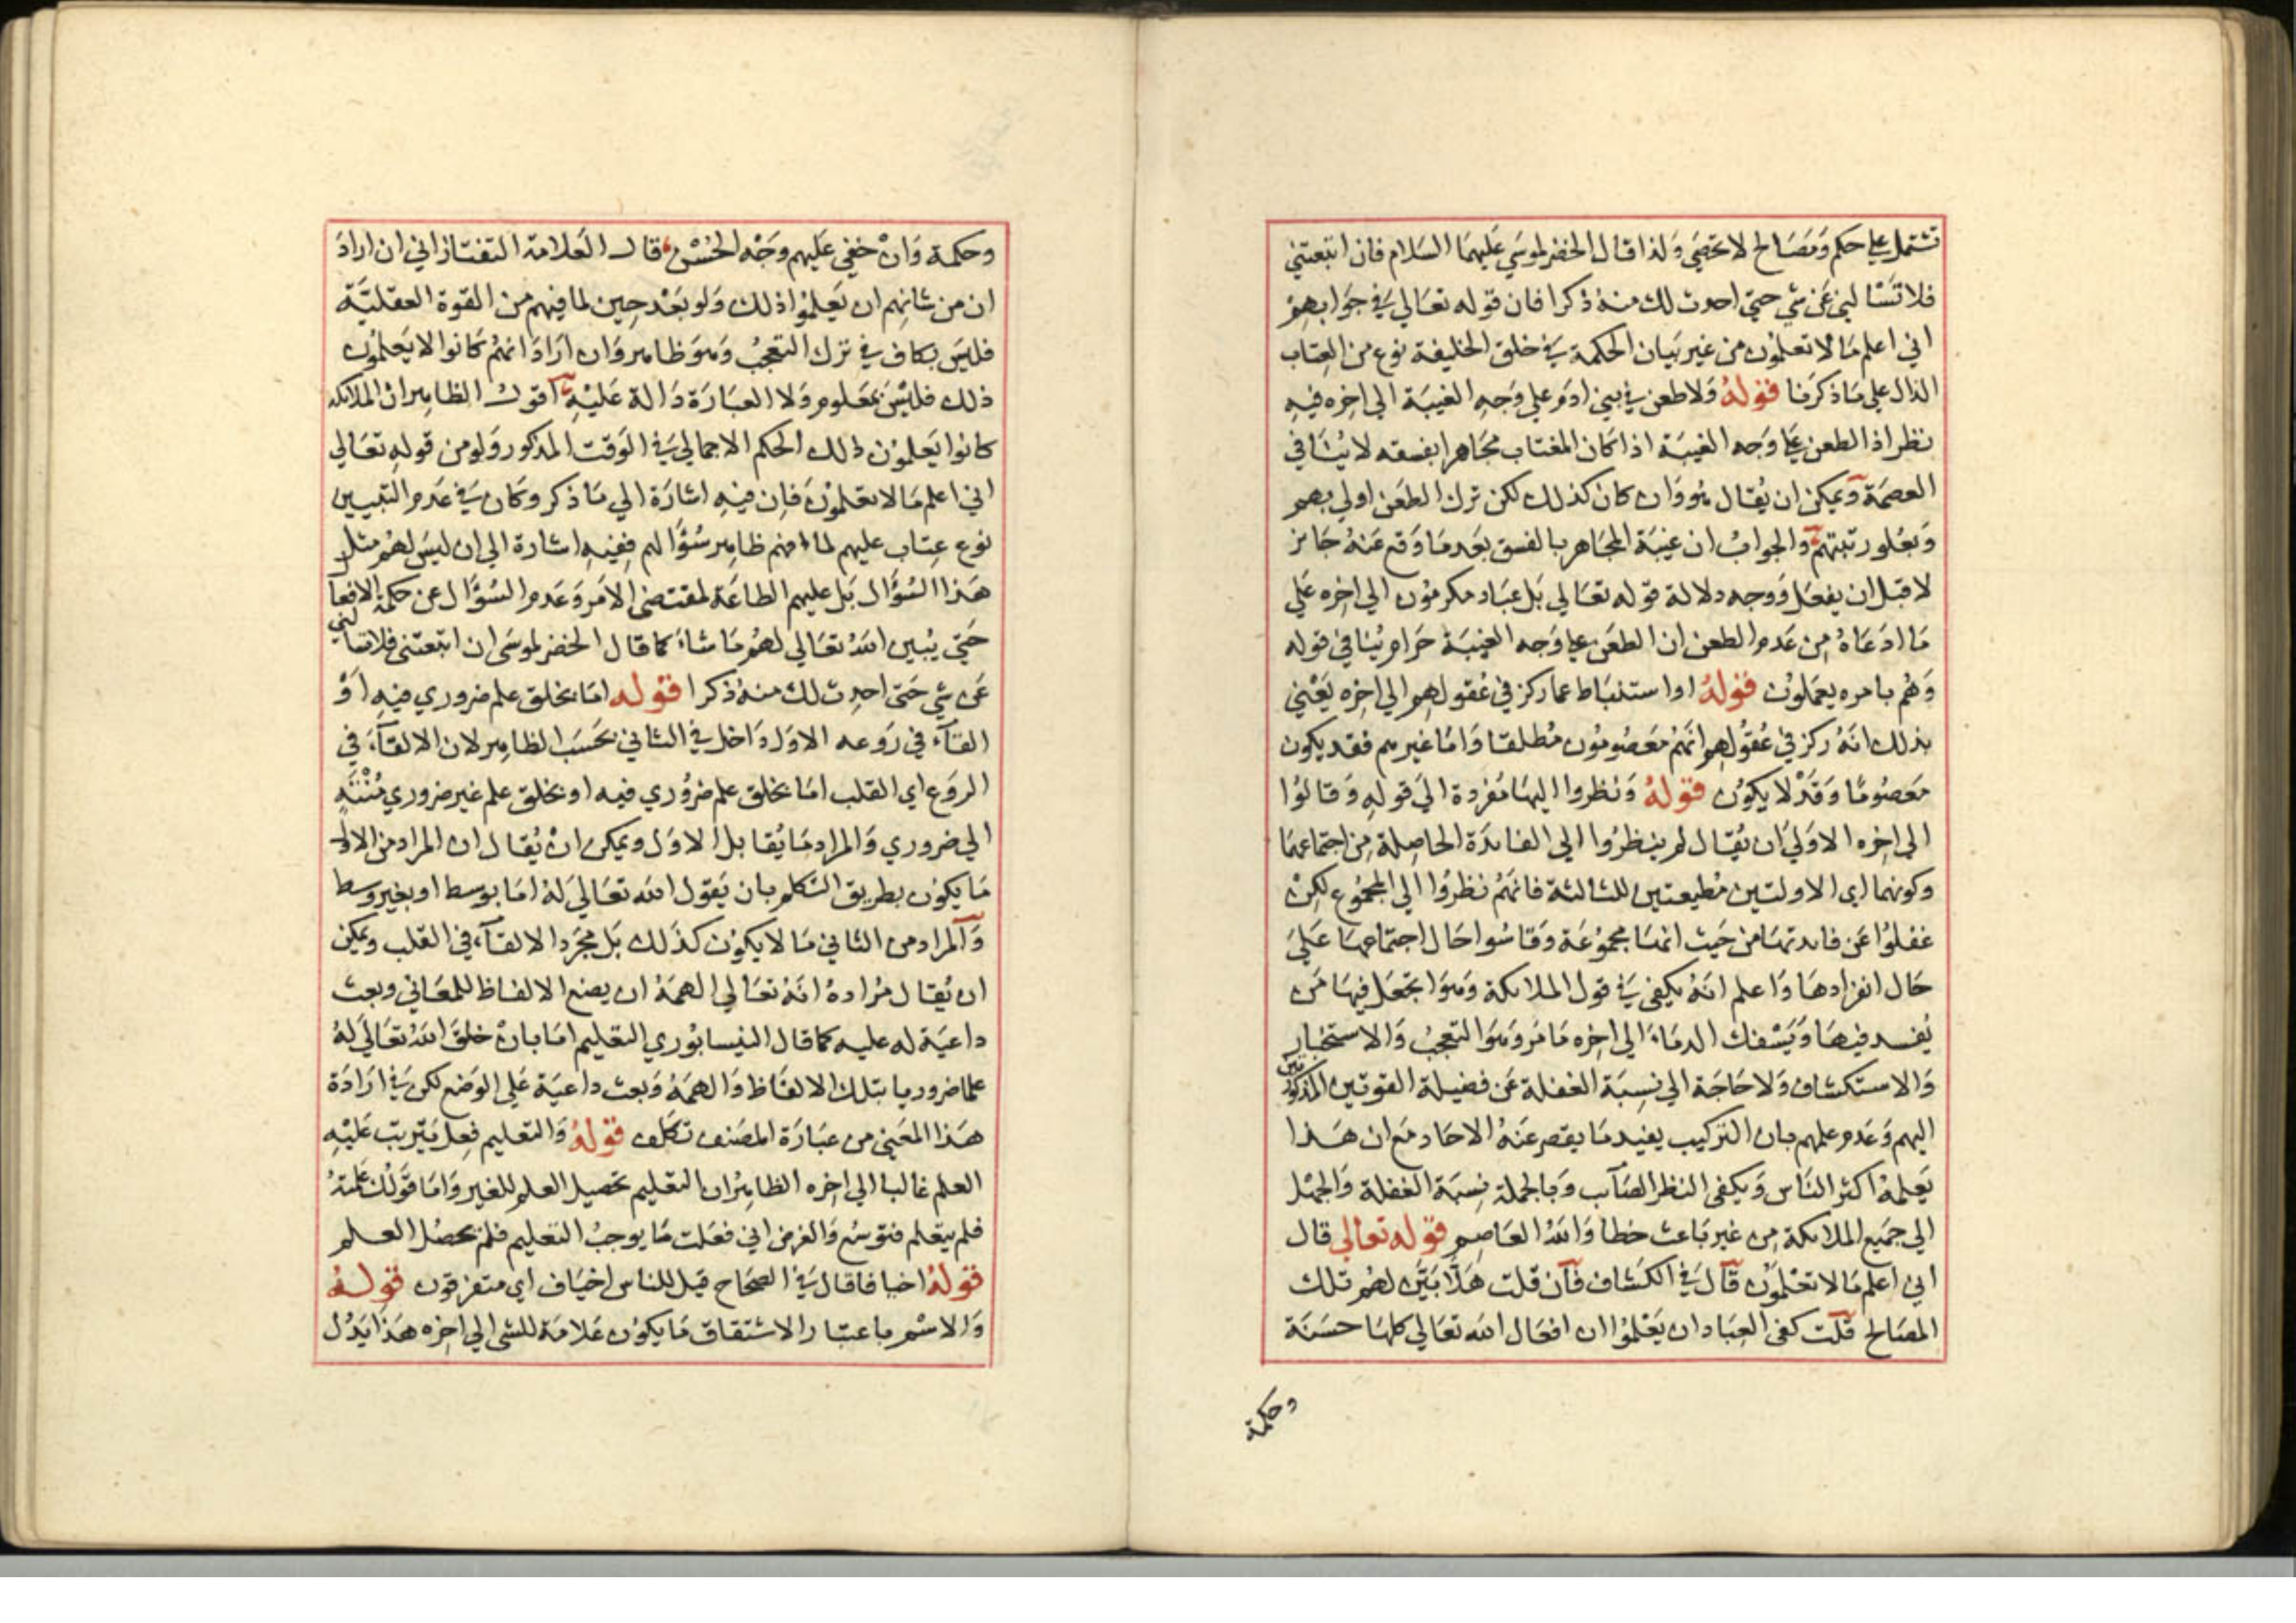 تشتمل علي حكم ومصالح لا تحصي ولذا قال الخضر لموسي عليهما السلام فان اتبعتني
فلا تسالني عن شي حتي احدث لك منه ذكرا فان قوله تعالي في جوابهم
اني اعلم ما لا تعلمون من غير بيان الحكمة في خلق الخليفة نوع من العتاب
الدال علي ما ذكرنا قوله ولا طعن في بني ادم علي وجه الغيبة الي اخره فيه
نظر اذ الطعن علي وجه الغيبة اذا كان المغتاب مجاهرا بفسقه لا ينافي
العصمة ويمكن ان يقال هو وان كان كذلك لكن ترك الطعن اولي بهم
وبعلو رتبتهم والجواب ان غيبة المجاهر بالفسق بعد ما وقع عنه جائز
لا قبل ان يفعل ووجه دلالة قوله تعالي بل عباد مكرمون الي اخره علي
ما ادعاه من عدم الطعن ان الطعن علي وجه الغيبة حرام ينافي قوله
وهم بامره يعملون قوله او استنباط عما ركز في عقولهم الي اخره يعني
بذلك انه ركز في عقولهم انهم معصومون مطلقا واما غيرهم فقد يكون
معصوما وقد لا يكون قوله ونظروا اليها مفردة الي قوله وقالوا
الي اخره الاولي ان يقال لم ينظروا الي الفائدة الحاصلة من اجتماعهما
وكونهما اي الاولتين مطيعتين للثالثة فانهم نظروا الي المجموع لكن
غفلوا عن فائدتها من حيث انها مجموعة وقاسوا حال اجتماعها علي
حال انفرادها واعلم انه يكفي في قول الملائكة وهو اتجعل فيها من
يفسد فيها ويسفك الدماء الي اخره ما مر وهو التعجب والاستخبار
والاستكشاف ولا حاجة الي نسبة الغفلة عن فضيلة القوتين المذكورتين
اليهم وعدم علمهم بان التركيب يفيد ما يقصر عنه الاحاد مع ان هذا
يعلمه اكثر الناس ويكفي النظر الصائب وبالجملة نسبة الغفلة والجهل
الي جميع الملائكة من غير باعث خطا والله العاصم قوله تعالي قال
اني اعلم ما لا تعلمون قال في الكشاف فان قلت هلا بين لهم تلك
المصالح قلت كفي العباد ان يعلموا ان افعال الله تعالي كلها حسنة
وحكمة
وحكمة وان خفي عليهم وجه الحسن قال العلامة التفتازاني ان اراد
ان من شانهم ان يعلموا ذلك ولو بعد حين لما فيهم من القوة العقلية
فليس بكاف في ترك التعجب وهو ظاهر وان اراد انهم كانوا لا يعلمون
ذلك فليس بمعلوم ولا العبارة دالة عليه اقول الظاهر ان الملائكة
كانوا يعلمون ذلك الحكم الاجمالي في الوقت المذكور ولو من قوله تعالي
اني اعلم ما لا تعلمون فان فيه اشارة الي ما ذكر وكان في عدم التبيين
نوع عتاب عليهم لما اوهم ظاهر سؤالهم ففيه اشارة الي ان ليس لهم مثل
هذا السؤال بل عليهم الطاعة لمقتضي الامر وعدم السؤال عن حكمة الافعال
حتي يبين الله تعالي لهم ما شاء كما قال الخضر لموسي ان اتبعتني فلا تسالني
عن شي حتي احدث لك منه ذكرا قوله اما بخلق علم ضروري فيه او
القاء في روعه الاول داخل في الثاني بحسب الظاهر لان الالقاء في
الروع اي القلب اما بخلق علم ضروري فيه او بخلق علم غير ضروري منته
الي ضروري والمراد ما يقابل الاول ويمكن ان يقال ان المراد من الاول
ما يكون بطريق التكلم بان يقول الله تعالي له اما بوسط او بغير وسط
والمراد من الثاني ما لا يكون كذلك بل مجرد الالقاء في القلب ويمكن
ان يقال مراده انه تعالي الهمه ان يضع الالفاظ للمعاني وبعث
داعية له عليه كما قال النيسابوري التعليم اما بان خلق الله تعالي له
علما ضروريا بتلك الالفاظ والهمه وبعث داعية علي الوضع لكن في ارادة
هذا المعني من عبارة المصنف تكلف قوله والتعليم فعل يترتب عليه
العلم غالبا الي اخره الظاهر ان التعليم تحصيل العلم للغير واما قولك علمته
فلم يتعلم فتوسع والغرض اني فعلت ما يوجب التعليم فلم يحصل العلم
قوله اخيافا قال في الصحاح قيل للناس اخياف اي متفرقون قوله
والاسم باعتبار الاشتقاق ما يكون علامة للشي الي اخره هذا يدل